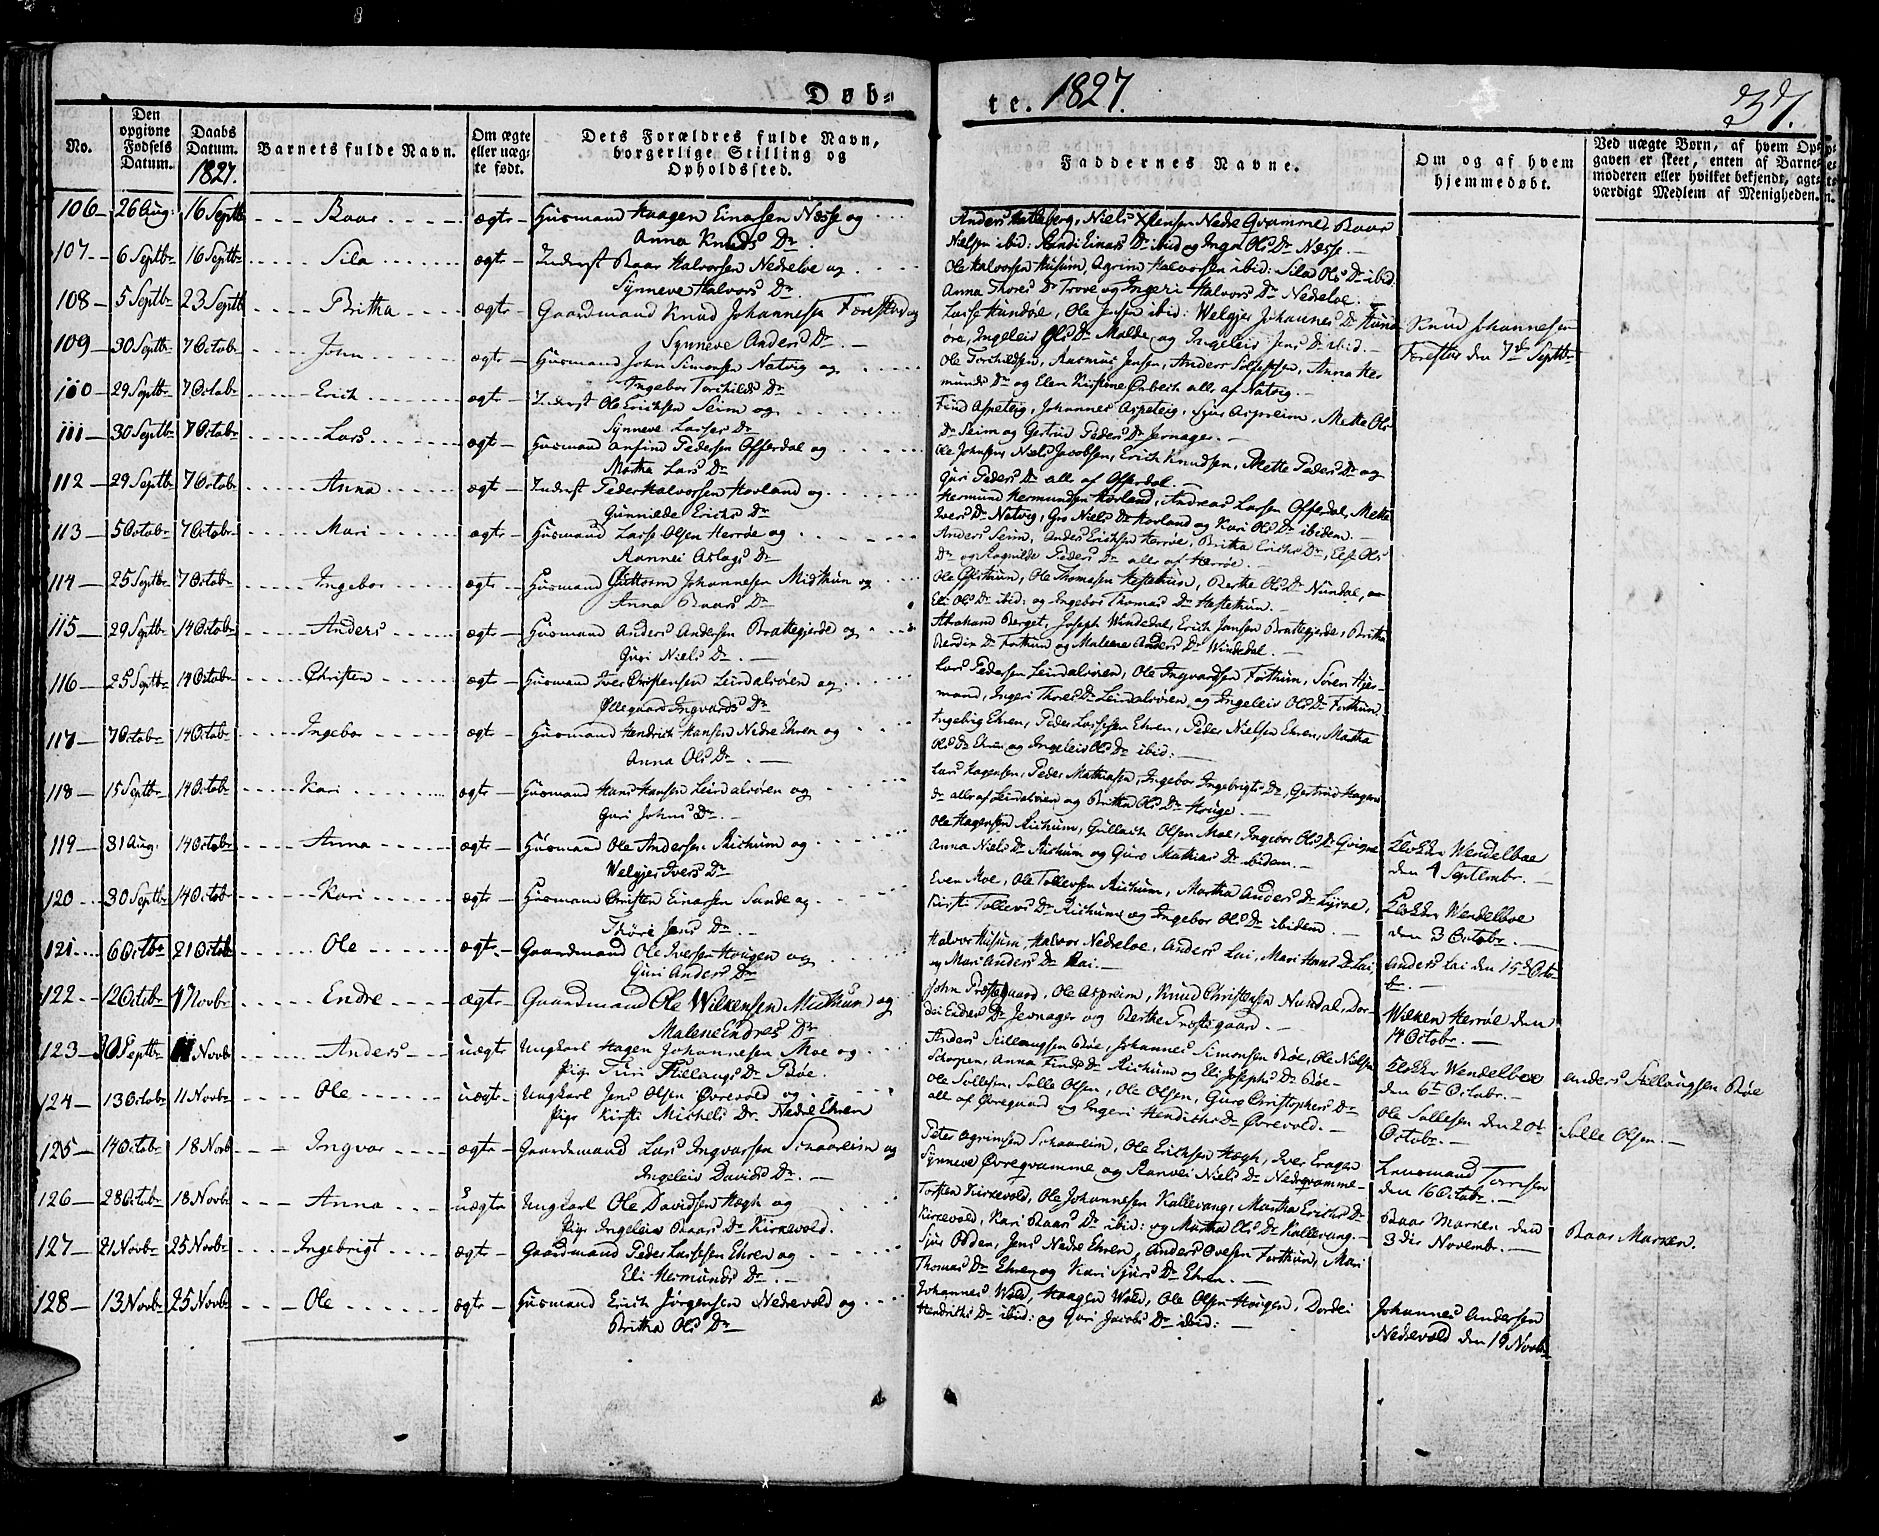 Døb-
te. 1827.
37.
No.
Den opgivne Fødsels Datum.
Daabs Datum. 1827.
Barnets fulde Navn.
Om ægte eller uægte født.
Dets Forældres fulde Navn, borgerlige Stilling og Opholdssted.
Faddernes Navne.
Om og af hvem hjemmedøbt.
Ved uægte Børn, af hvem Opgaven er skeet, enten af Barnemoderen eller hvilket bekjendt, agtværdigt Medlem af Menigheden.
106 26 Aug. 16 Septbr Baar ægte Huusmand Haagen Einarsen Næsse og
Anna Knuds Dr.
Nielsen ibid: Einars Dr ibid og Inga Ols Dr Næsse.
107 6 Septbr 16 Septbr Sila ægte Inderst Baar Halvorsen Nedreloe og
Synneve Halvors Dr.
Ole Halvorsen Husum, Agrim Halvorsen ibid: Sila Ols Dr ibid
Anna Thores Dr Trove og Ingeri Halvors Dr Nedreloe.
108 5 Septbr 23 Septbr Britha ægte Gaardmand Knud Johannesen Forestad og
Synneve Anders Dr.
Lasse Hundøe, Ole Jensen ibid: Welgjer Johannes Dr Hund
øre, Ingeleis Ols Dr Molde, og Ingeleis Jens Dr ibid.
Knud Johannesen
den 7d Septbr
109 30 Septbr 7 Octobr John ægte Huusmand John Simonsen Natvig og
Ingebor Torchilds Dr
Ole Torchildsen, Rasmus Jensen, Anders Anna Her
munds Dr og Elen Kirstine alle af Natvig.
110 29 Septbr 7 Octobr Erich ægte Inderst Ole Erichsen Seim og
Synneve Lasses Dr
Find Aspeteig, Johannes Aspeteig, Sjur Aspreim, Mette Ols
Dr Seim og Gertrud Peders Dr Jernager.
111 30 Septbr 7 Octobr Lars ægt Huusmand Anfind Pedersen Offerdal og
Martha Lars Dr
Ole Johnsen, Niels Jacobsen, Erich Knudsen, Mette Peders Dr og
Guri Peders Dr alle af Offerdal.
112 29 Septbr 7 Octobr Anna ægt Inderst Peder Halvorsen Hovland og
Gunnilde Erichs Dr
Hermund Hermundsen Hovland, Andreas Larsen Offerdal, Mette
Ivers Dr Natvig, Gro Niels Dr Hovland og Kari Ols Dr ibidem.
113 5 Octobr 7 Octobr Mari ægte Huusmand Lasse Olsen Herrøe og
Rannei Aslags Dr
Anders Seim, Anders Erichsen Herrøe, Britha Erichs Dr, Ols
Dr og Ragnilde Peders Dr alle af Herrøe.
114 25 Septbr 7 Octobr Ingebor ægt Huusmand Guttorm Johannesen Midthun og
Anna Baars Dr
Ole Thomasen Hestethun, Berthe Ols Dr Nundal,
Eli Ols Dr ibid: og Ingebor Thomas Dr Hestethun.
115 29 Septbr 14 Octobr Anders ægt Huusmand Anders Andersen Brattegjerde og
Guri Niels Dr.
Abraham Berget, Joseph Windedal, Erich Jensen Brattegjerde, Britha
Dr Forthun og Malene Anders Dr Windedal.
116 25 Septbr 14 Octobr Christen ægt Huusmand Iver Christensen Leirdalsøren og
Øllegaard Ingvards Dr
Lars Pedersen Leirdalsøren, Ole Ingvardsen Forthun, Søren Hjer
mand, Ingeri Thores Dr Leirdalsøren og Ingeleis Ols Dr Forthun.
117 7 Octobr 14 Octobr Ingebor ægt Huusmand Hendrich Hansen Nedre Ehren og
Anna Ols Dr.
Ingebrig Ehren, Peder Lassesen Ehren, Peder Nielsen Ehren, Martha
Ols Dr Ehren og Ingeleis Ols Dr ibid:
118 15 Septbr 14 Octobr Kari ægte Huusmand Hans Hansen Leirdalsøren og
Guri Johns Dr.
Lars Hagensen, Peder Mathiasen, Ingebor Ingebrigts Dr, Gertrud Hagens
Dr alle af Leirdalsøren og Britha Ols Dr Houge.
119 31 Aug. 14 Octobr Anna ægte Huusmand Ole Andersen Richum og
Welgjer Ivers Dr
Ole Hagensen Richum, Gullach Olsen Moe, Ingebor Ols Dr Qvigne
Anna Niels Dr Richum og Guro Mathias Dr ibidem.
Klokker Wendelboe
den 4 Septembr.
120 30 Septbr 14 Octobr Kari ægt Huusmand Christen Einarsen Sande og
Thore Jens Dr.
Even Moe, Ole Tollevsen Richum, Martha Anders Dr Lysne,
Kirsti Tollevs Dr Richum og Ingebor Ols Dr ibidem.
Klokker Wendelboe
den 3 Octobr.
121 6 Octbr 21 Octobr Ole ægt Gaardmand Ole Iversen Hougen og
Guri Anders Dr
Halvor Husum, Halvor Nedreloe, Anders Lai, Mari Hans Dr Lai
og Mari Anders Dr Rai.
Anders Lai den 15d Octo
br.
122 12 Octobr 17 Novbr Endre ægte Gaardmand Ole Wilkensen Midthun og
Malene Endres Dr
John Præstegaard, Ole Aspreim, Knud Christensen Nundal, Dor-
dei Endres Dr Jevnager og Berthe Præstegaard.
Wilken Herrøe den
14 Octobr.
123 30 Septbr 11 Novbr Anders uægt Ungkarl Hagen Johannesen Moe og
Pige Turi Stillaugs Dr Bøe.
Anders Stillaugsen Bøe, Johannes Simonsen Bøe, Ole Nielsen
Schorpen, Anna Finds Dr Richum og Eli Josephs Dr Bøe
Klokker Wendelboe
den 6te Octobr.
Anders Stillaugsen Bøe
124 13 Octobr 11 Novbr Ole uægt Ungkarl Jens Olsen Øvrevold og
Pige Kirsti Michels Dr. Nedre Ehren
Ole Sallesen, Salle Olsen, Ole Olsen, Guro Christophers Dr
alle af Øvregaard og Ingeri Hendriks Dr Øvrevold.
Ole Sallesen den 20d
Octobr.
Salle Olsen.
125 14 Octobr 18 Novbr Ingvor ægte Gaardmand Lars Ingvarsen Schaarheim og
Ingeleis Davids Dr.
Peter Agrimsen Schaarheim, Ole Erichsen Hægh, Iver Eragen
Synneve Øvreqvamme og Ranvei Niels Dr Nedreqvamme
Lensmand
den 16 Octobr.
126 28 Octobr 18 Novbr Anna uægte Ungkarl Ole Davidsen Hægh og
Pige Ingeleis Baars Dr Kirkevold.
Torsten Kirkevold, Ole Johannesen Kallevang, Martha Erichs Dr
Kirkevold, Kari Baars Dr ibid: og Martha Ols Dr Kallevang.
Baar Marken den
3die Novembr.
Baar Marken.
127 21 Novbr 25 Novbr Ingebrigt ægt Gaardmand Peder Lassesen Ehren og
Eli Hermunds Dr.
Sjur Odden, Jens Nedre Ehren, Anders Ovesen Forthun, Mari
Thomas Dr Ehren og Kari Sjurs Dr Ehren.
128 13 Novbr 25 Novbr Ole ægte Huusmand Erich Jørgensen Nedrevold og
Britha Ols Dr
Johannes Wold, Haagen Wold, Ole Olsen Hougen, Dordei
Hendriks Dr ibid: og Guri Jacobs Dr ibid:
Johannes Andersen
Nedrevold den 19 Novbr